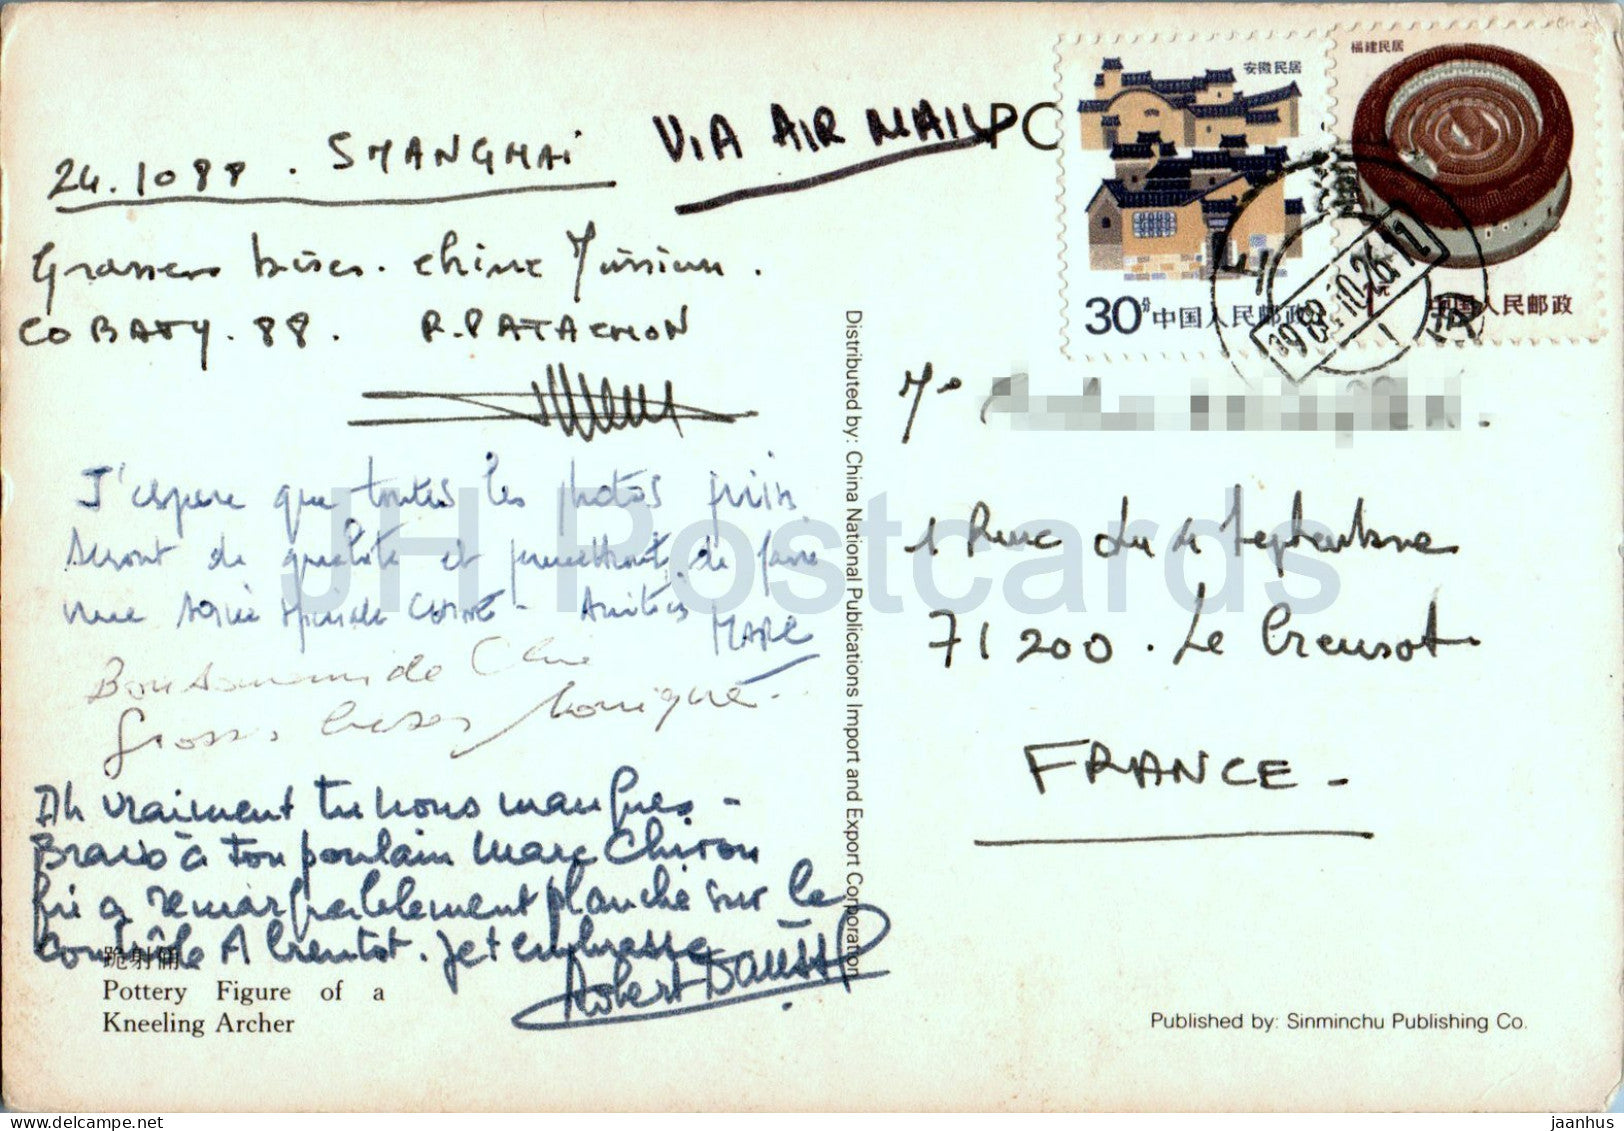 24.10 88 . SHANGHAI
VIA AIR MAIL
PO
Grosses bises. Chine Mission.
CO BATY. 88. R. PATACHON
J'espere que toutes les photos prises
seront de qualité et permettront de faire
une série spéciale CHINE - Amitiés
MARC
Bon souvenir de Chine
Grosses bises Monique.
Ah vraiment tu nous manques -
Bravo à ton poulain Marc Chiron
qui a remarquablement planché sur le
contrôle A bientot. Je t'embrasse
Robert
跪射俑
Pottery Figure of a
Kneeling Archer
Distributed by: China National Publications Import and Export Corporation
安徽民居
30分 中国人民邮政
福建民居
1元 中国人民邮政
1988.10.26.11
1 Rue du 4 Septembre
71200 . Le Creusot
FRANCE -
Published by: Sinminchu Publishing Co.
JH Postcards
jaanhus © Delcampe.net